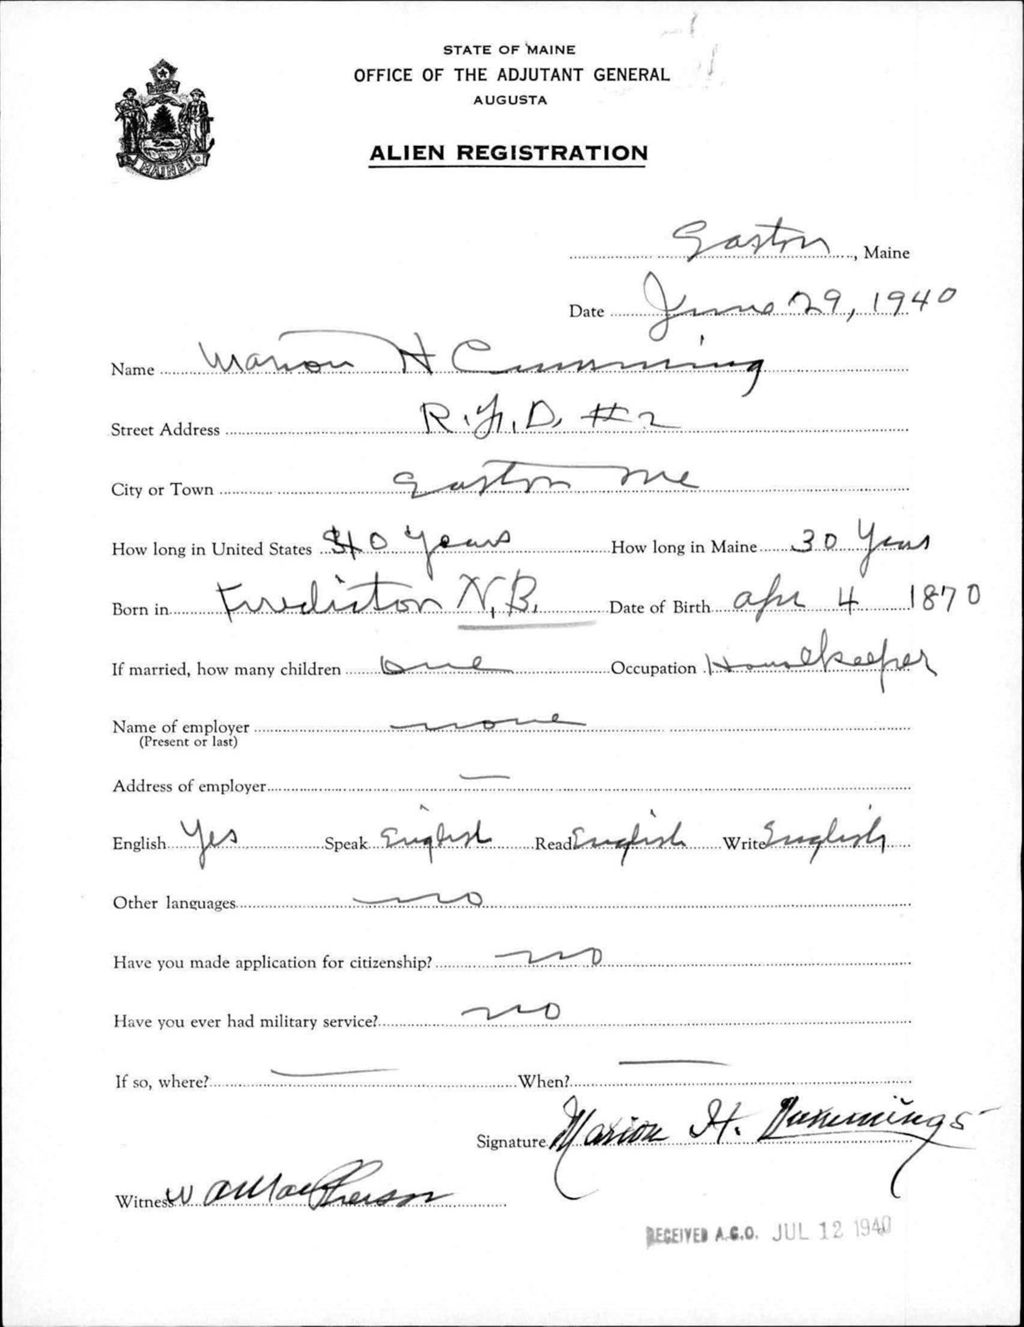 STATE OF MAINE
OFFICE OF THE ADJUTANT GENERAL
AUGUSTA
ALIEN REGISTRATION
MAINE
Easton, Maine
Date June 29, 1940
Name Marion H Cumming
Street Address R.F.D. #2
City or Town Easton Me
How long in United States 40 Years How long in Maine 30 Years
Born in Fredicton N.B. Date of Birth Apr 4 1870
If married, how many children one Occupation Housekeeper
Name of employer none
(Present or last)
Address of employer —
English Yes Speak English Read English Write English
Other languages no
Have you made application for citizenship? no
Have you ever had military service? no
If so, where? — When? —
Signature Marion H. Cummings
Witness MacPherson
RECEIVED A.G.O. JUL 12 1940